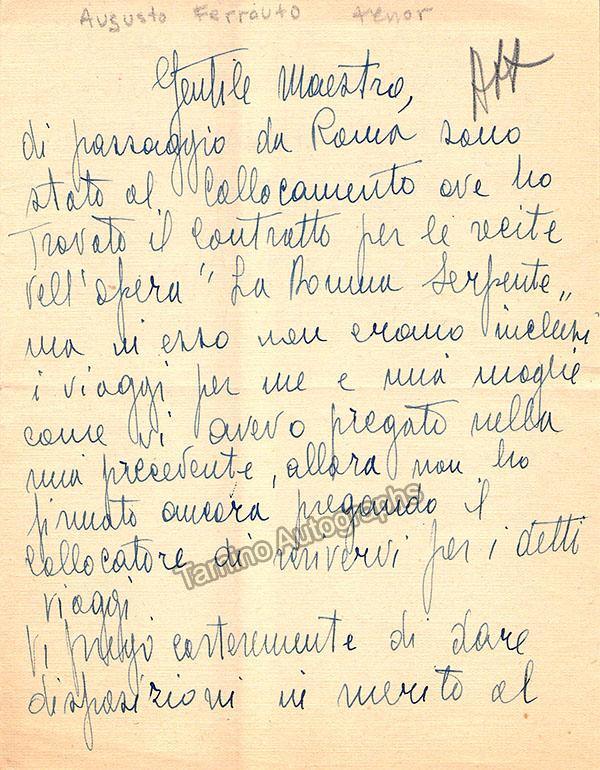 Augusto Ferrauto tenor
Gentile Maestro,
di passaggio da Roma sono
stato al Collocamento ove ho
Trovato il Contratto per le recite
dell'opera "La Donna Serpente„
ma in esso non erano inclusi
i viaggi per me e mia moglie
come vi avevo pregato nella
mia precedente, allora non ho
firmato ancora pregando il
Collocatore di scrivervi per i detti
viaggi
Vi prego cortesemente di dare
disposizioni in merito al
Tamino Autographs